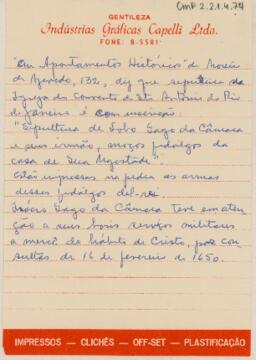 CMP 2.2.1.4.74
GENTILEZA
Indústrias Gráficas Capelli Ltda.
FONE: 8-5581
"Em Apontamentos Históricos" de Moreira
de Azevedo, 132, diz que sepultura da
Igreja do Convento de Sto Antonio do Rio
de Janeiro é com inscrição:
"Sepultura de Lobo Gago da Câmara
e seus irmãos, moços fidalgos da
casa de Sua Magestade".
Estão impressas na pedra as armas
desses fidalgos del-rei.
Gago da Câmara teve em aten-
ção a seus bons serviços militares
a mercê do hábito de Cristo, por con-
sultas de 16 de fevereiro de 1650.
IMPRESSOS — CLICHÊS — OFF-SET — PLASTIFICAÇÃO